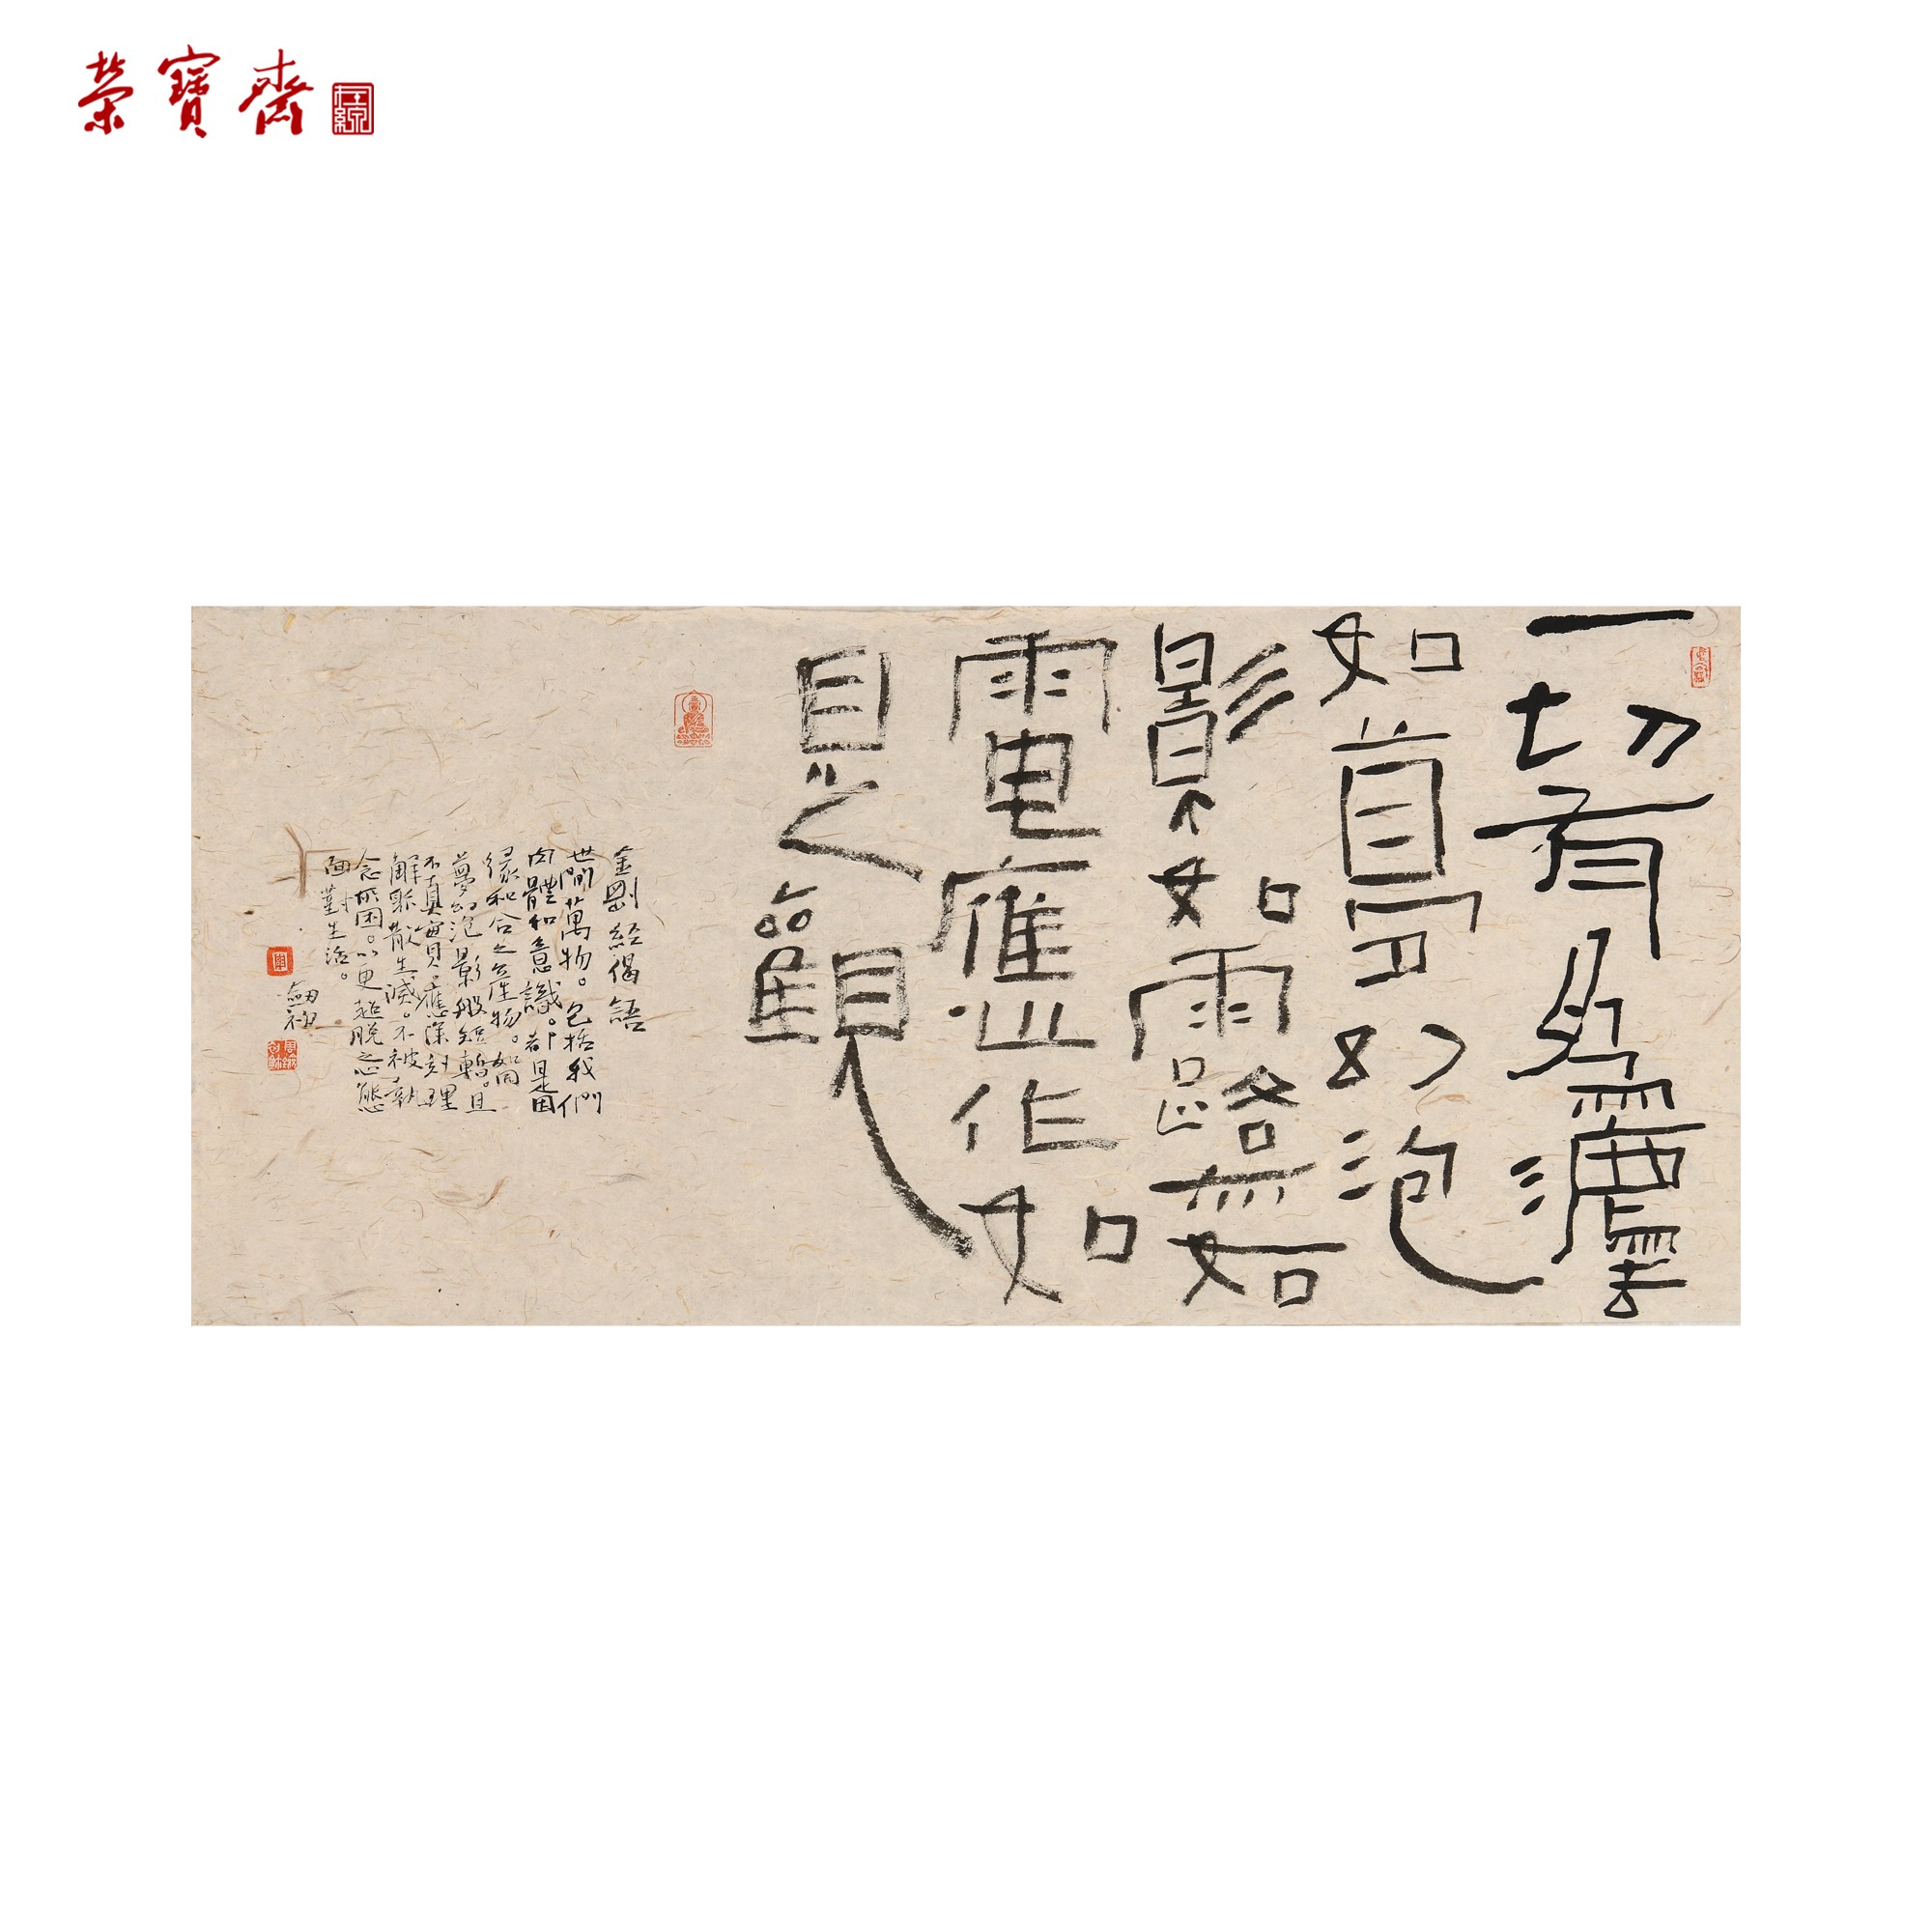 榮寶齋
在線
一切有為灋
如夢幻泡
影如露亦如
電應作如
是觀
金剛經偈語
世間萬物。包括我們
肉體和意識。都是因
緣和合之產物。如同
夢幻泡影般短暫。且
不真實。應深刻理
解聚散生滅。不被執
念所困。以更超脫之心態
面對生活。